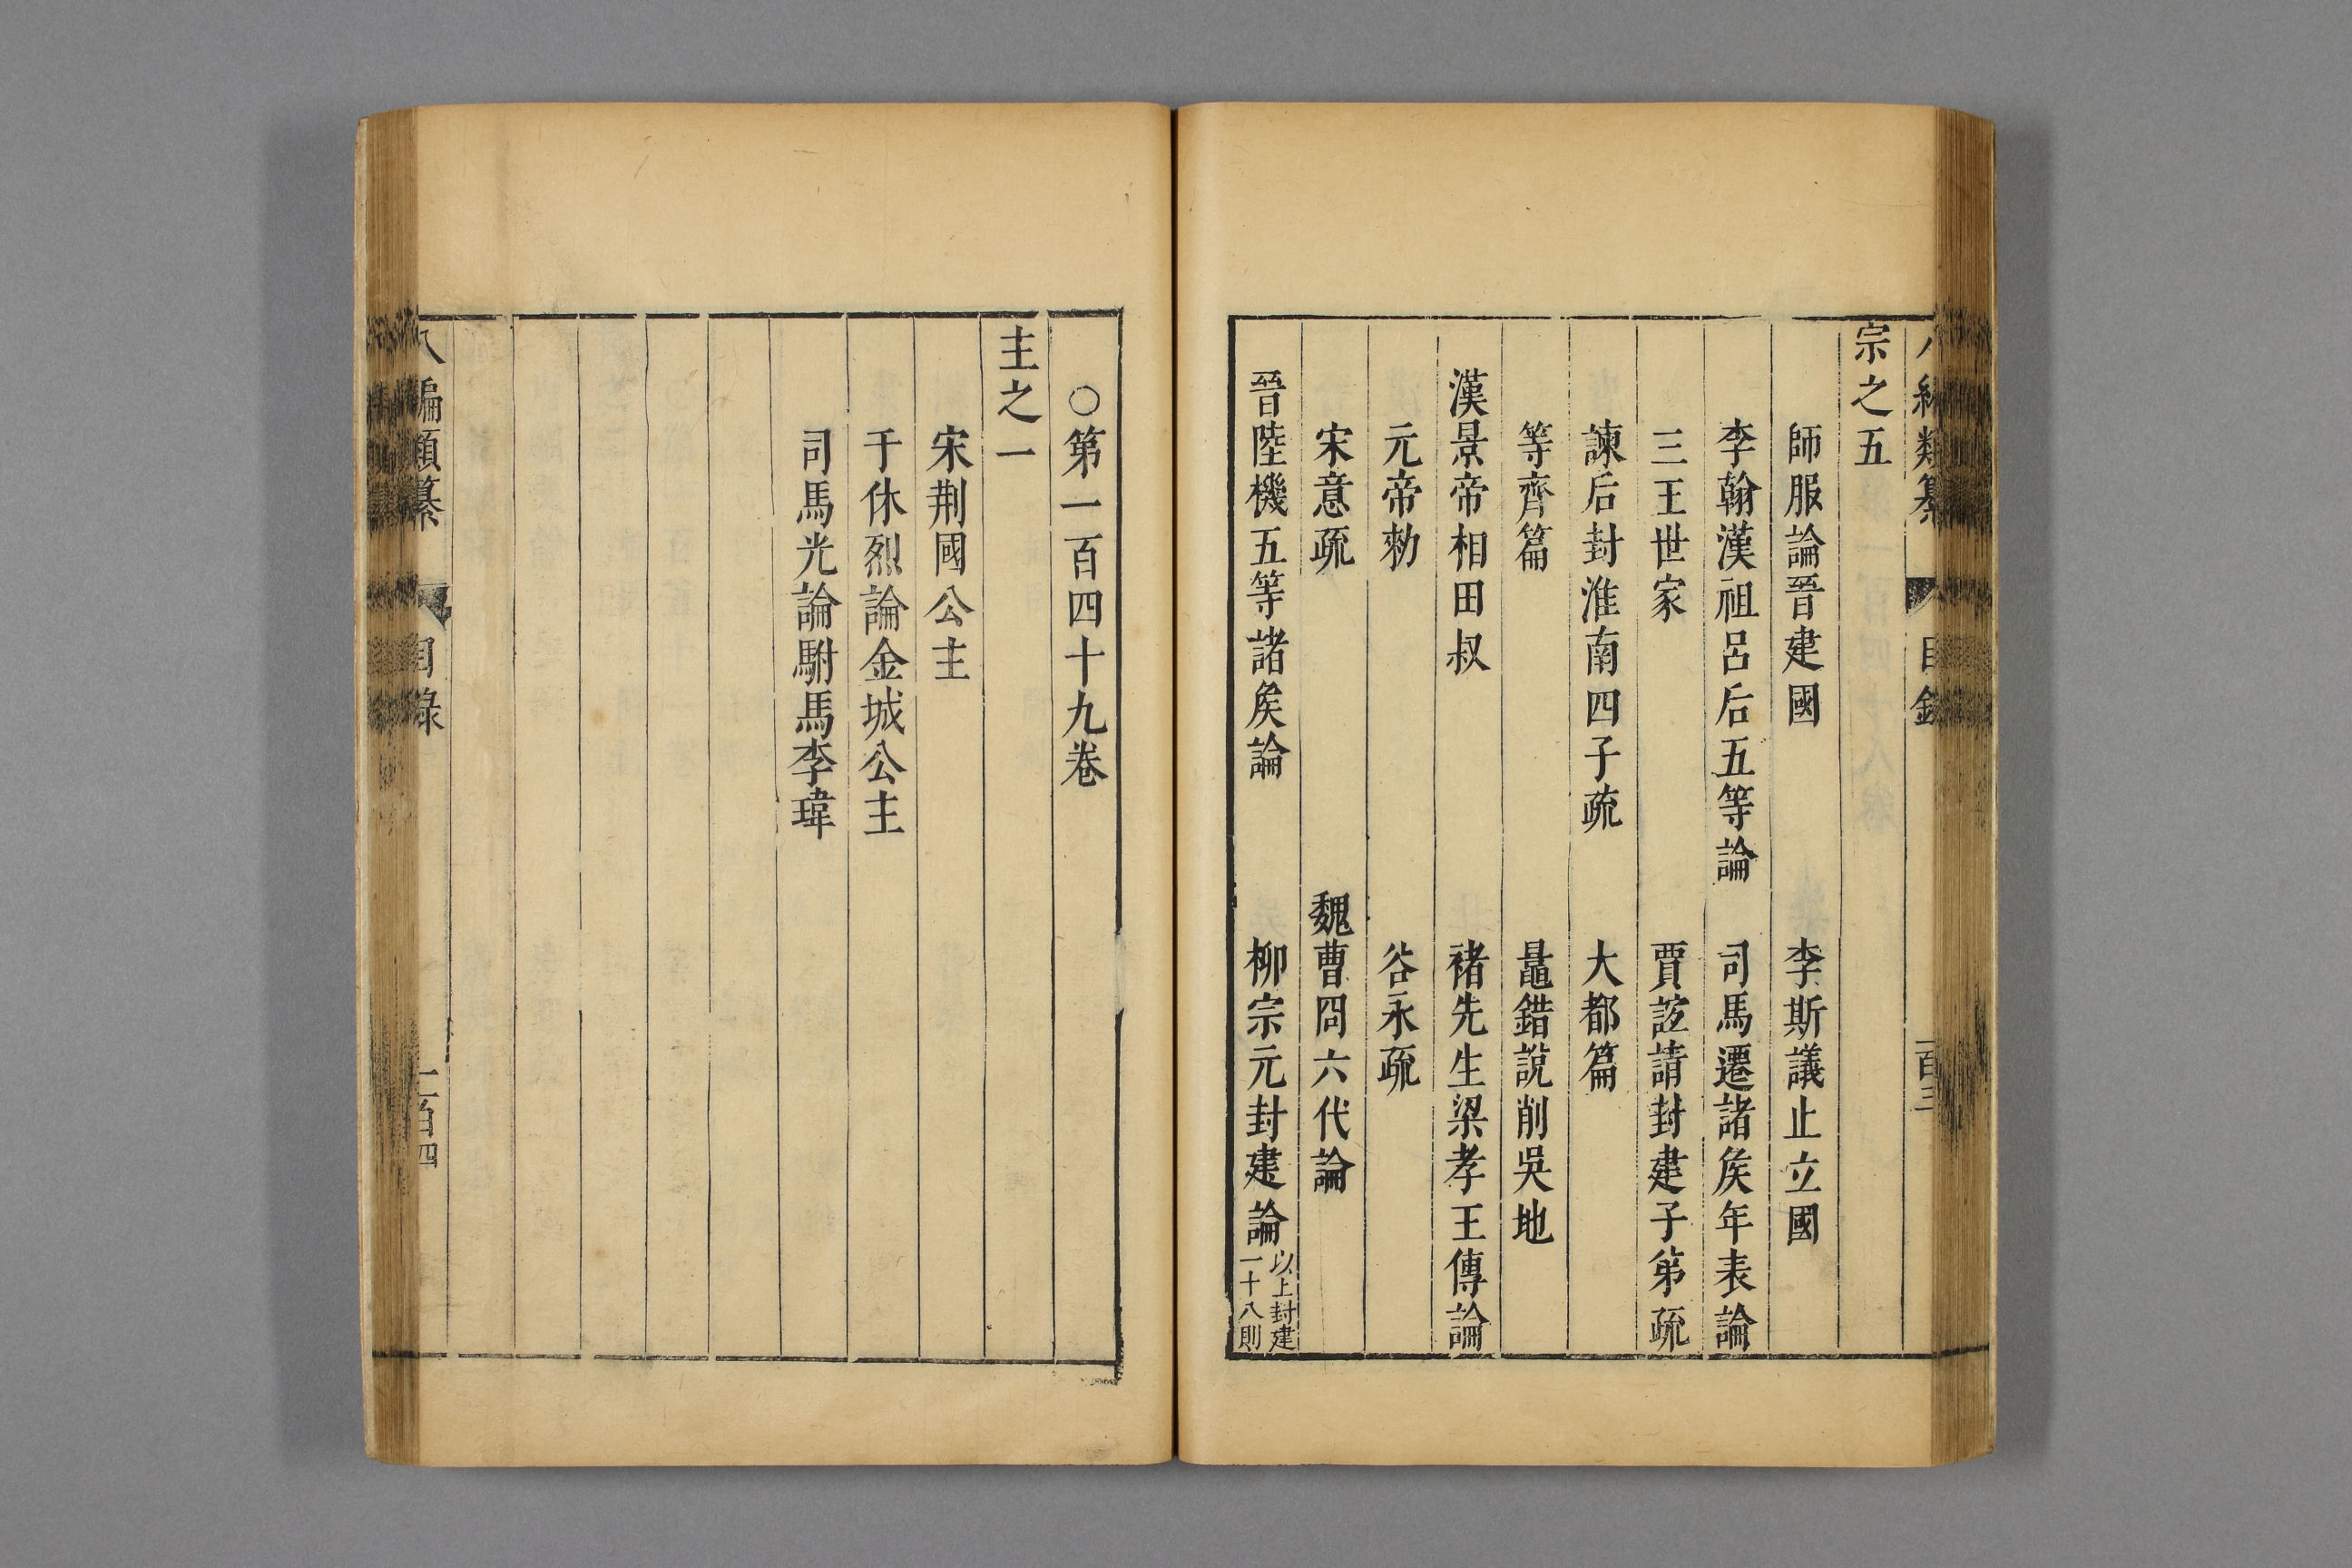 八編類纂 目錄 一百三
宗之五
師服論晉建國 李斯議止立國
李翰漢祖呂后五等論 司馬遷諸矦年表論
三王世家 賈誼請封建子弟疏
諫后封淮南四子疏 大都篇
等齊篇 鼂錯說削吳地
漢景帝相田叔 褚先生梁孝王傳論
元帝勑 谷永疏
宋意疏 魏曹冏六代論
晉陸機五等諸矦論 柳宗元封建論 以上封建一十八則
○第一百四十九卷
主之一
宋荆國公主
于休烈論金城公主
司馬光論駙馬李瑋
八編類纂 目錄 一百四